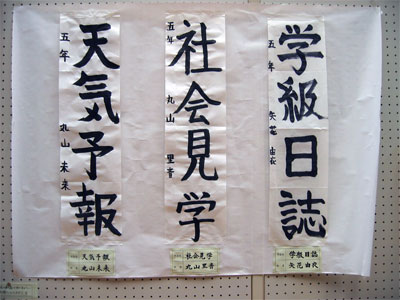 学級日誌
五年 矢花 由衣
学級日誌
矢花由衣
社会見学
五年 丸山 里音
社会見学
丸山里音
天気予報
五年 丸山 未来
天気予報
丸山未来